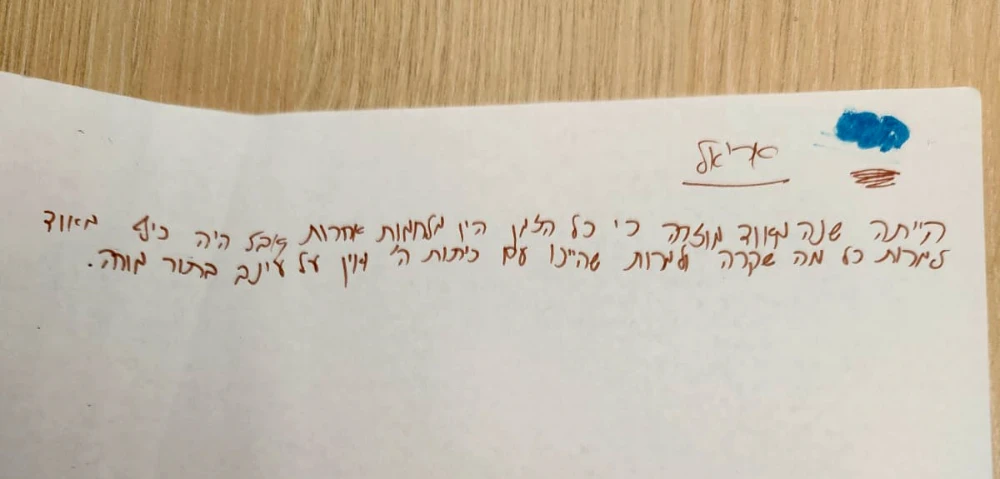 אריאל
הייתה שנה מאווד מוזרה כי כל הזמן היו מלחמות אחרות אבל היה כיף מאווד
למרות כל מה שקרה ולמרות שהיינו עם כיתות ה' ועל עינב בתור מורה.